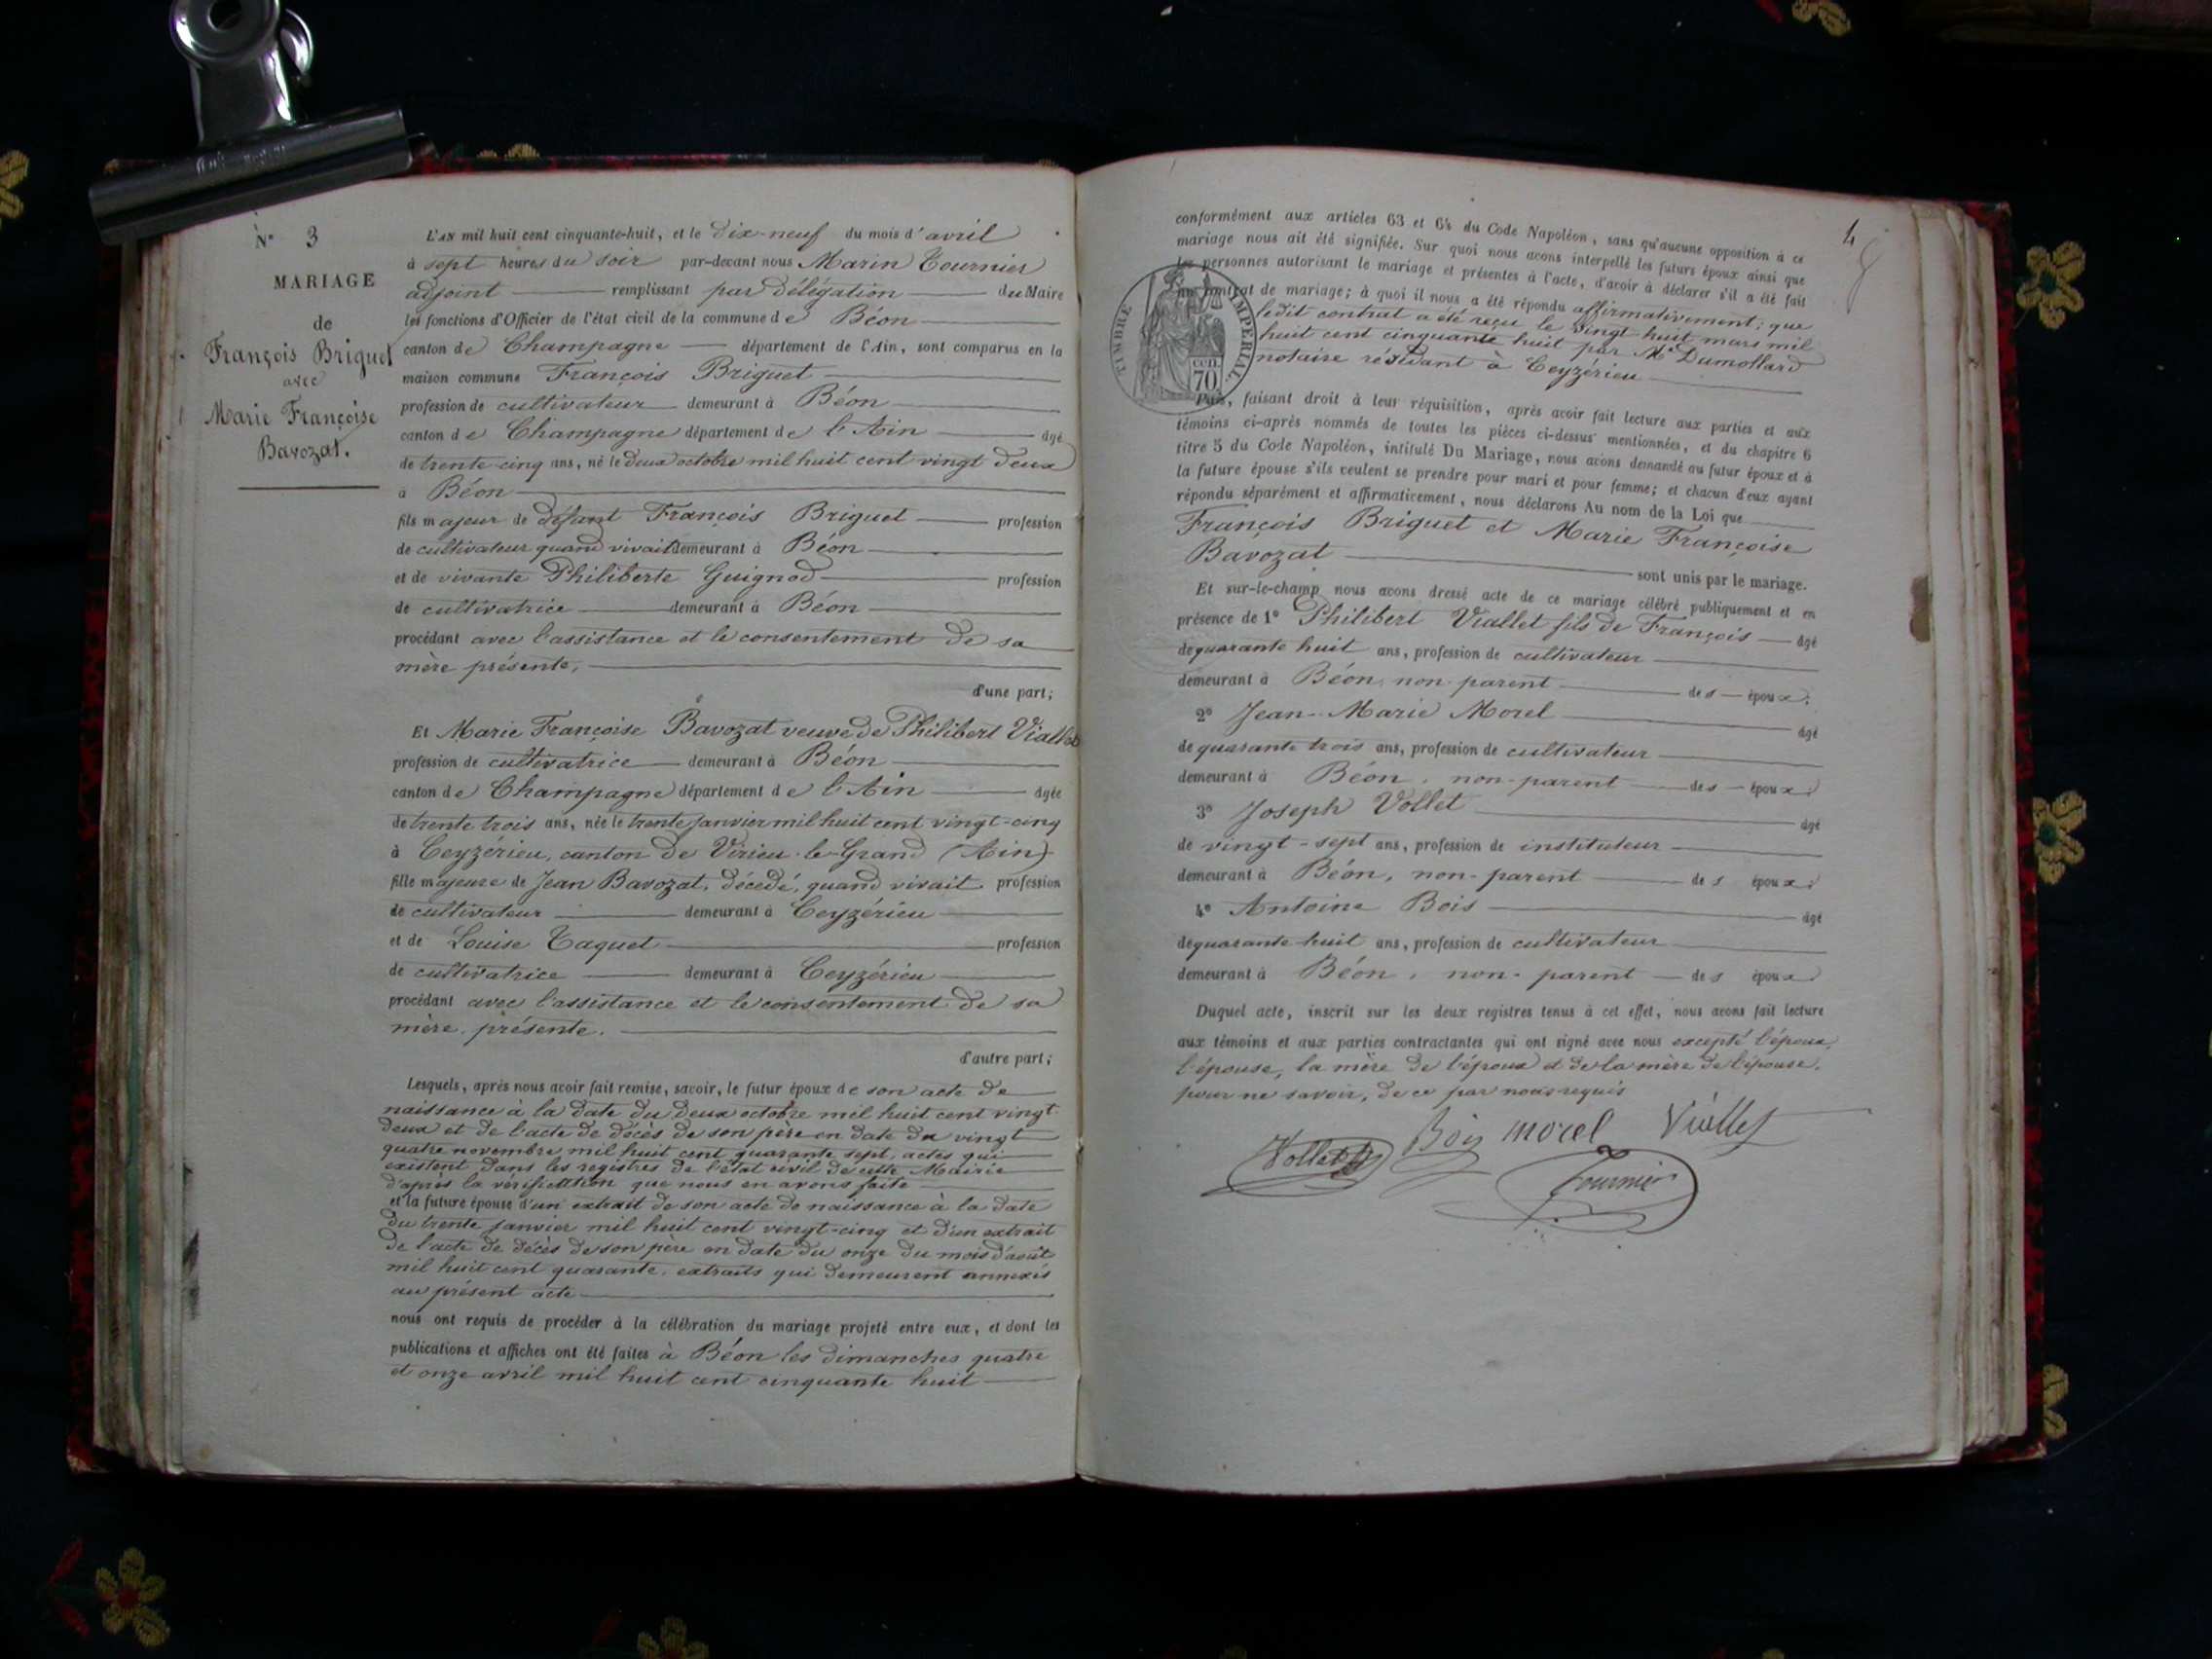 N° 3
MARIAGE
de
François Briguet
avec
Marie Françoise
Bavozat.
L'AN mil huit cent cinquante-huit, et le dix-neuf du mois d'avril
à sept heures du soir par-devant nous Marin Tournier
adjoint remplissant par délégation du Maire
les fonctions d'Officier de l'état civil de la commune de Béon
canton de Champagne département de l'Ain, sont comparus en la
maison commune François Briguet
profession de cultivateur demeurant à Béon
canton de Champagne département de l'Ain âgé
de trente-cinq ans, né le deux octobre mil huit cent vingt deux
à Béon
fils majeur de défunt François Briguet profession
de cultivateur quand vivait demeurant à Béon
et de vivante Philiberte Guignod profession
de cultivatrice demeurant à Béon
procédant avec l'assistance et le consentement de sa
mère présente,
d'une part;
Et Marie Françoise Bavozat veuve de Philibert Viallet
profession de cultivatrice demeurant à Béon
canton de Champagne département de l'Ain âgée
de trente trois ans, née le trente janvier mil huit cent vingt-cinq
à Ceyzerieu, canton de Virieu-le-Grand (Ain)
fille majeure de Jean Bavozat, décédé, quand vivait profession
de cultivateur demeurant à Ceyzérieu
et de Louise Taquet profession
de cultivatrice demeurant à Ceyzérieu
procédant avec l'assistance et le consentement de sa
mère, présente.
d'autre part;
Lesquels, après nous avoir fait remise, savoir, le futur époux de son acte de
naissance à la date du deux octobre mil huit cent vingt
deux et de l'acte de décès de son père en date du vingt
quatre novembre mil huit cent quarante sept, actes qui
existent dans les registres de l'état civil de cette Mairie
d'après la vérification que nous en avons faite
et la future épouse d'un extrait de son acte de naissance à la date
du trente janvier mil huit cent vingt-cinq et d'un extrait
de l'acte de décès de son père en date du onze du mois d'août
mil huit cent quarante, extraits qui demeurent annexés
au présent acte
nous ont requis de procéder à la célébration du mariage projeté entre eux, et dont les
publications et affiches ont été faites à Béon les dimanches quatre
et onze avril mil huit cent cinquante huit
4
conformément aux articles 63 et 64 du Code Napoléon, sans qu'aucune opposition à ce
mariage nous ait été signifiée. Sur quoi nous avons interpellé les futurs époux ainsi que
les personnes autorisant le mariage et présentes à l'acte, d'avoir à déclarer s'il a été fait
un contrat de mariage; à quoi il nous a été répondu affirmativement; que
ledit contrat a été reçu le vingt huit mars mil
huit cent cinquante huit par Me Dumollard
notaire résidant à Ceyzérieu
TIMBRE IMPERIAL.
CEN.
70
Puis, faisant droit à leur réquisition, après avoir fait lecture aux parties et aux
témoins ci-après nommés de toutes les pièces ci-dessus mentionnées, et du chapitre 6
titre 5 du Code Napoléon, intitulé Du Mariage, nous avons demandé au futur époux et à
la future épouse s'ils veulent se prendre pour mari et pour femme; et chacun d'eux ayant
répondu séparément et affirmativement, nous déclarons Au nom de la Loi que
François Briguet et Marie Françoise
Bavozat sont unis par le mariage.
Et sur-le-champ nous avons dressé acte de ce mariage célébré publiquement et en
présence de 1° Philibert Viallet fils de François âgé
de quarante huit ans, profession de cultivateur
demeurant à Béon, non-parent des époux.
2° Jean-Marie Morel âgé
de quarante trois ans, profession de cultivateur
demeurant à Béon, non-parent des époux.
3° Joseph Vollet âgé
de vingt-sept ans, profession de instituteur
demeurant à Béon, non-parent des époux.
4° Antoine Bois âgé
de quarante-huit ans, profession de cultivateur
demeurant à Béon, non-parent des époux
Duquel acte, inscrit sur les deux registres tenus à cet effet, nous avons fait lecture
aux témoins et aux parties contractantes qui ont signé avec nous excepté l'époux,
l'épouse, la mère de l'époux et de la mère de l'épouse,
pour ne savoir, de ce par nous requis
Vollet Bois morel Viallet
Tournier